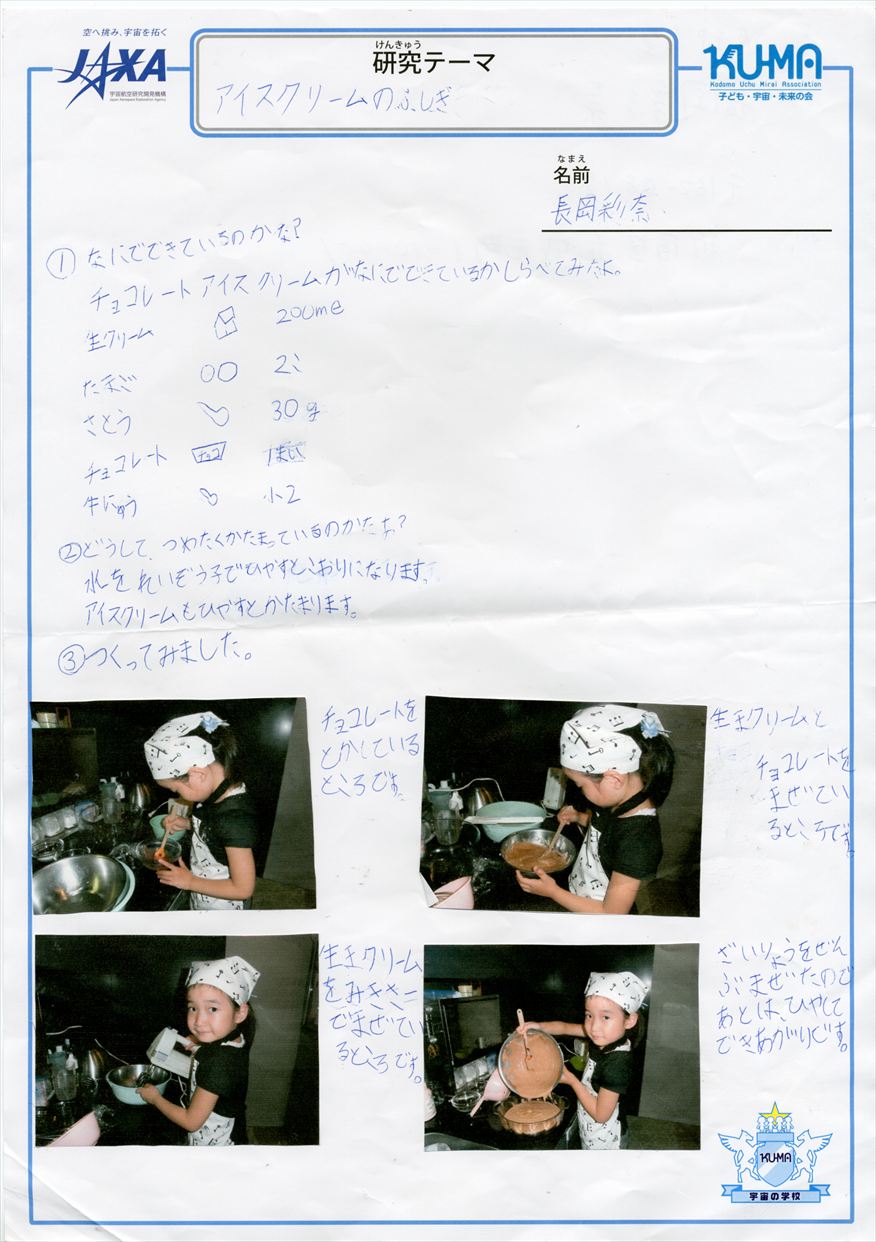 空へ挑み、宇宙を拓く
JAXA
宇宙航空研究開発機構
Japan Aerospace Exploration Agency
けんきゅう
研究テーマ
アイスクリームのふしぎ
KU-MA
Kodomo Uchu Mirai Association
子ども・宇宙・未来の会
なまえ
名前
長岡彩奈
① なにでできているのかな?
チョコレートアイスクリームがなにでできているかしらべてみたよ。
生クリーム 200ml
たまご 2こ
さとう 30g
チョコレート チョコ 1まい
牛にゅう 小2
②どうして、つめたくかたまっているのかなぁ?
水をれいぞう子でひやすとこおりになります。
アイスクリームもひやすとかたまります。
③つくってみました。
チョコレートを
とかしている
ところです。
生クリームと
チョコレートを
まぜてい
るところです。
生クリーム
をみきさー
でまぜてい
るところです。
ざいりょうをぜん
ぶまぜたので
あとは、ひやして
できあがりです。
KU-MA
宇宙の学校